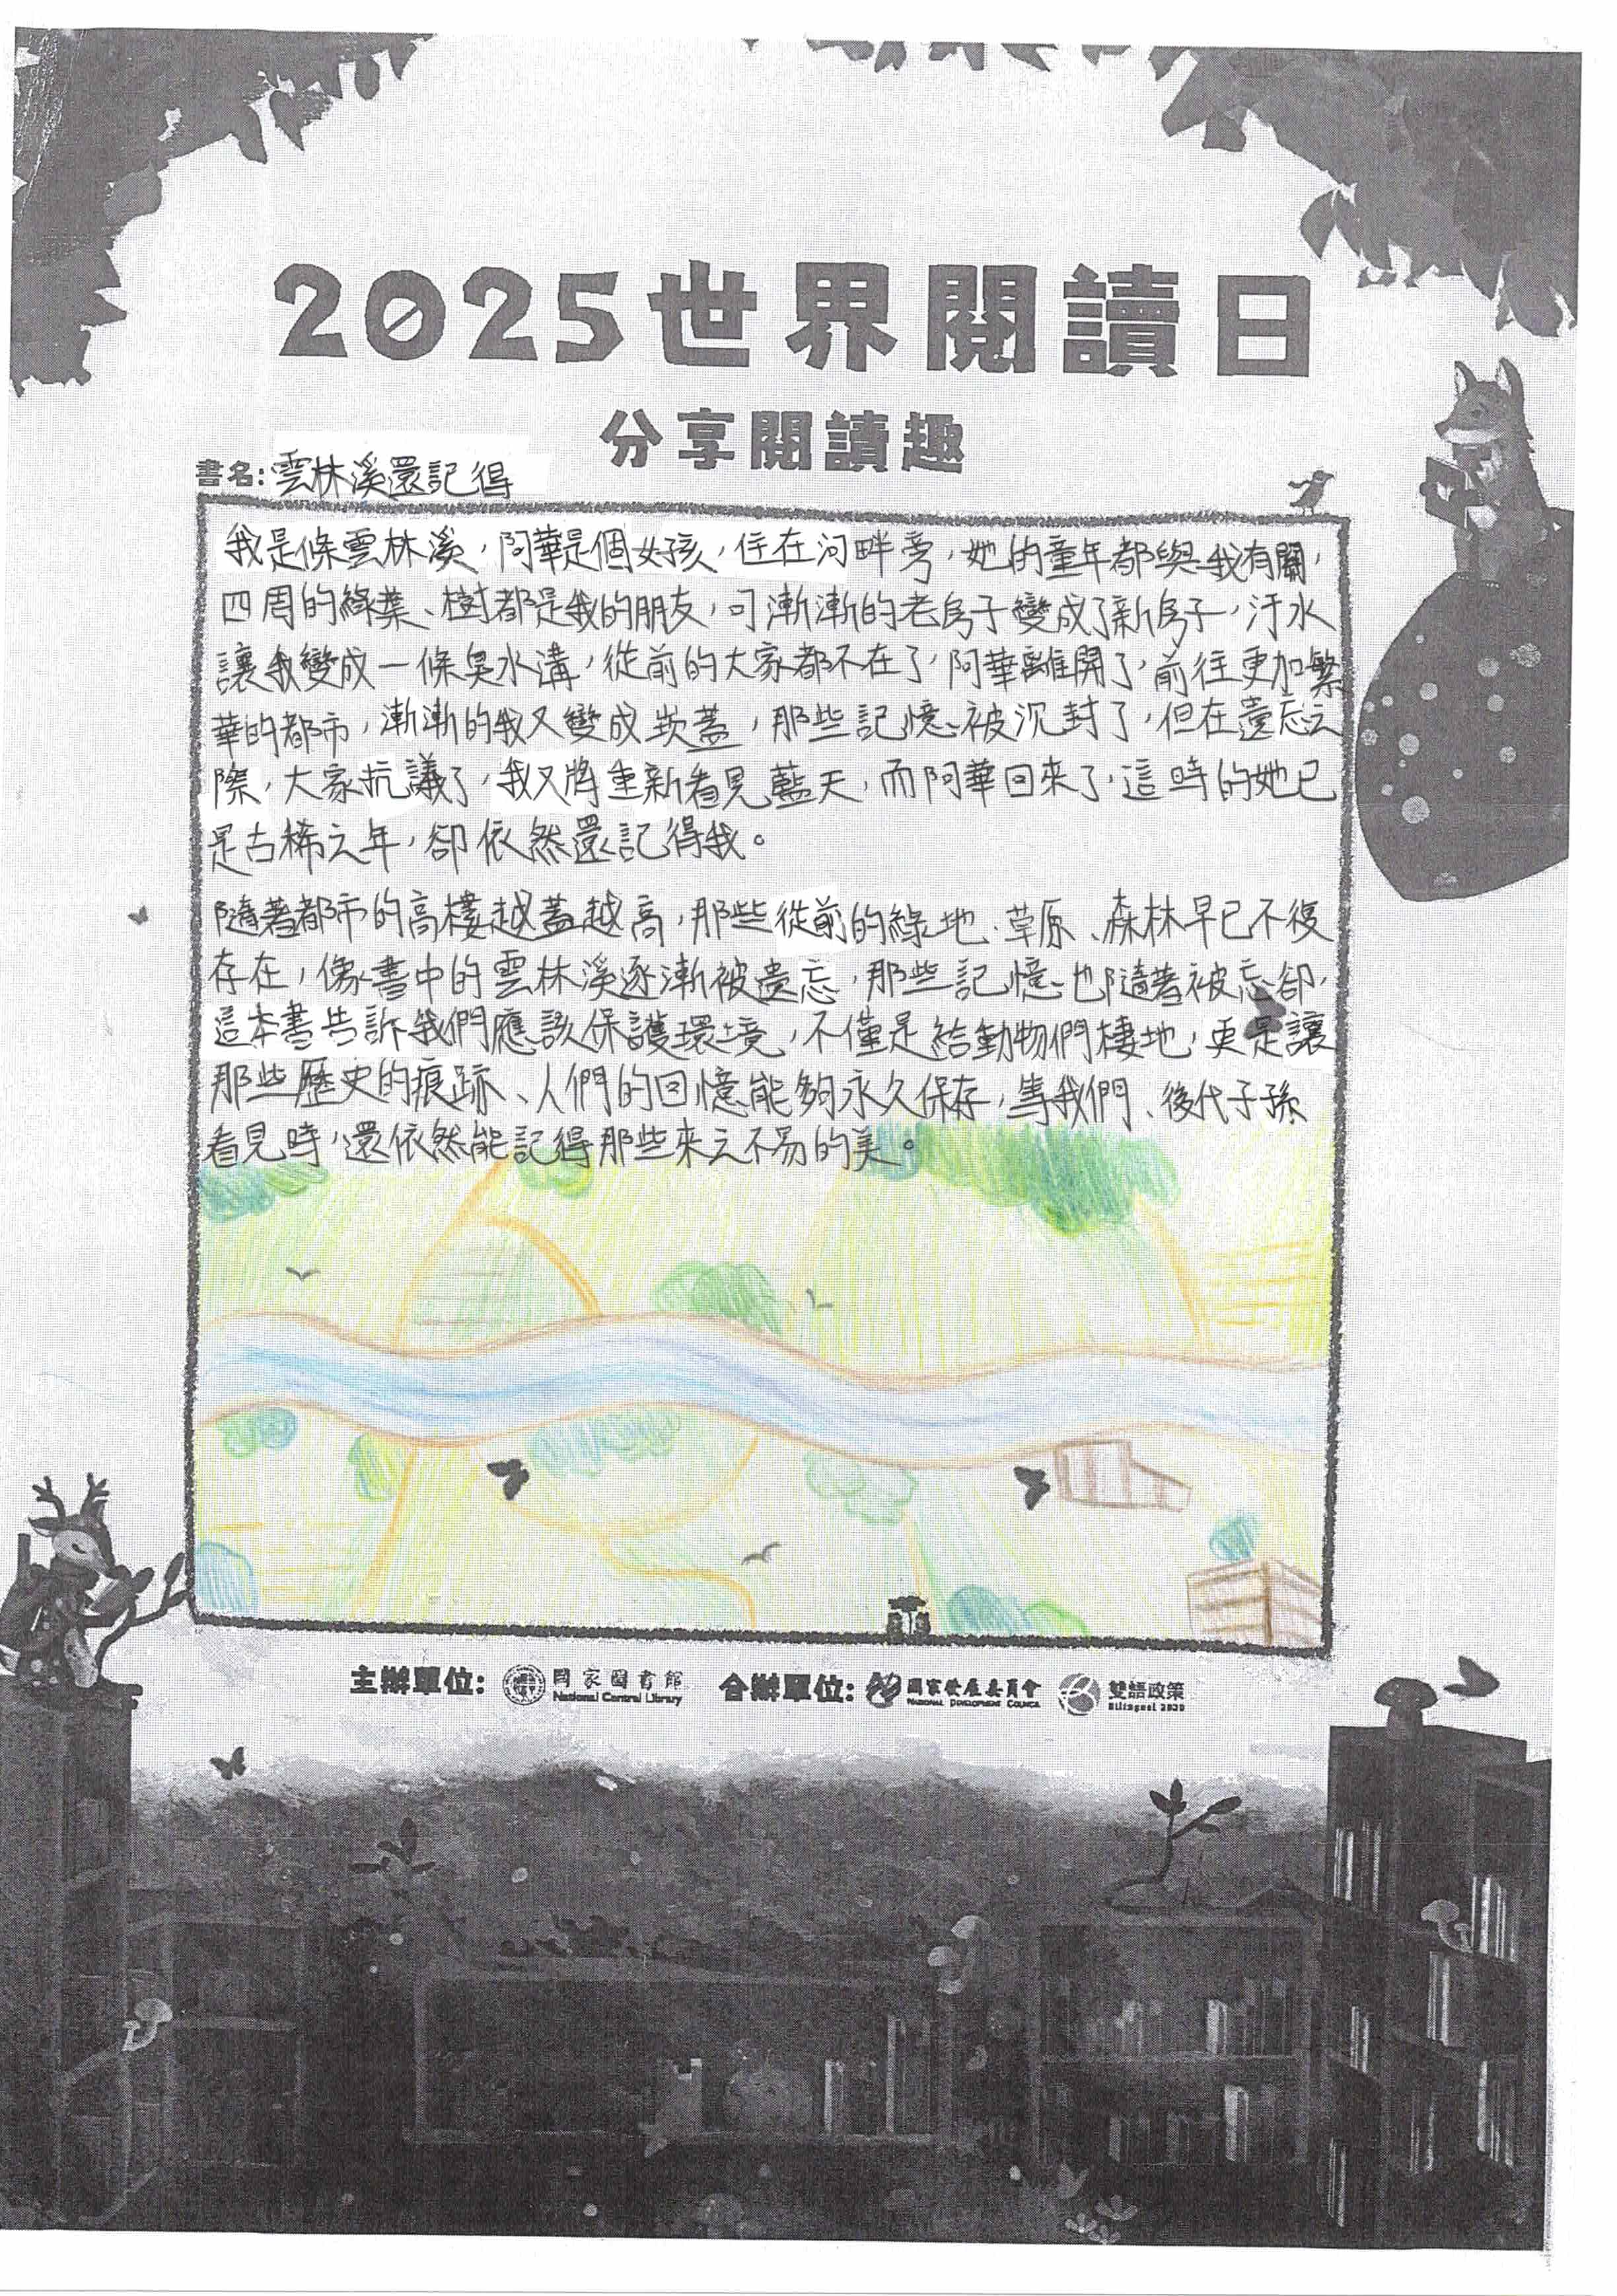 2025世界閱讀日
分享閱讀趣
書名:雲林溪還記得
我是條雲林溪,阿華是個女孩,住在河畔旁,她的童年都與我有關,
四周的綠葉、樹都是我的朋友,可漸漸的老房子變成了新房子,汙水
讓我變成一條臭水溝,從前的大家都不在了,阿華離開了,前往更加繁
華的都市,漸漸的我又變成崁蓋,那些記憶被沉封了,但在遺忘之
際,大家抗議了,我又將重新看見藍天,而阿華回來了,這時的她已
是古稀之年,卻依然還記得我。
隨著都市的高樓越蓋越高,那些從前的綠地、草原、森林早已不復
存在,像書中的雲林溪逐漸被遺忘,那些記憶也隨著被忘卻,
這本書告訴我們應該保護環境,不僅是給動物們棲地,更是讓
那些歷史的痕跡、人們的回憶能夠永久保存,等我們、後代子孫
看見時,還依然能記得那些來之不易的美。
主辦單位: 國家圖書館 National Central Library 合辦單位: 國家發展委員會 NATIONAL DEVELOPMENT COUNCIL 雙語政策 Bilingual 2030